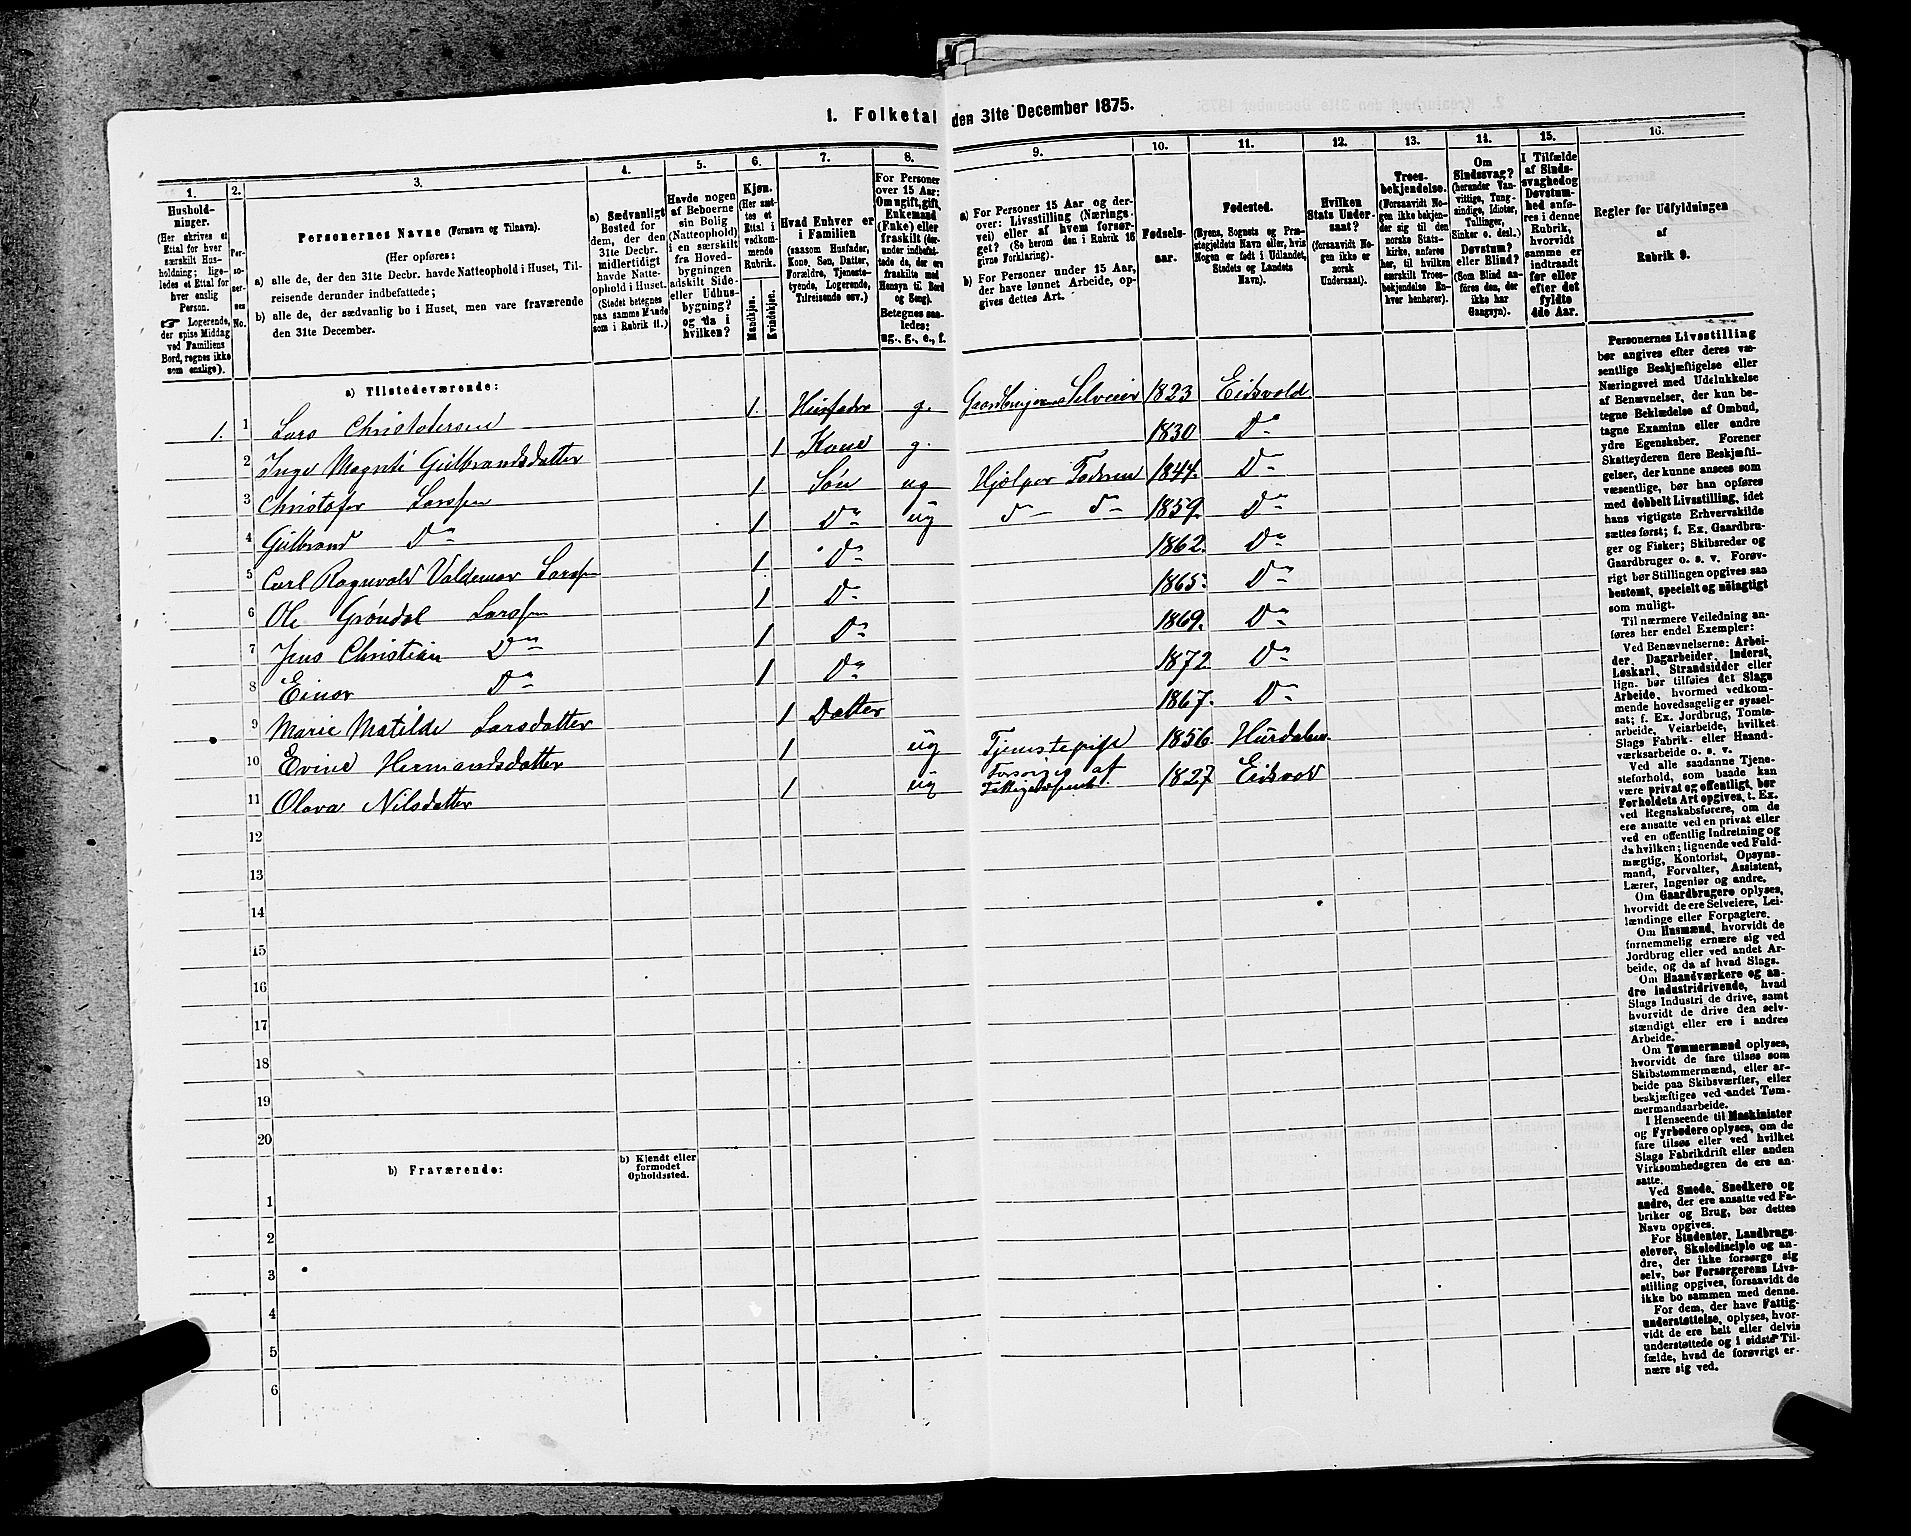 1. Folketal den 31te December 1875.
1.
2.
3.
4.
5.
6.
7.
8.
9.
10.
11.
12.
13.
14.
15.
16.
Hushold-
ninger.
(Her skrives et
Ettal for hver
særskilt Hus-
holdning; lige-
ledes et Ettal for
hver enslig
Person.
☞ Logerende,
der spise Middag
ved Familiens
Bord, regnes ikke
som enslige).
Per-
so-
ner-
nes
No.
Personernes Navne (Fornavn og Tilnavn).
(Her opføres:
a) alle de, der den 31te Decbr. havde Natteophold i Huset, Til-
reisende derunder indbefattede;
b) alle de, der sædvanlig bo i Huset, men vare fraværende
den 31te December.
a) Sædvanligt
Bosted for
dem, der den
31te Decbr.
midlertidigt
havde Natte-
ophold i Huset.
(Stedet betegnes
paa samme Maade
som i Rubrik 11.)
Havde nogen
af Beboerne
sin Bolig
(Natteophold)
i en særskilt
fra Hoved-
bygningen
adskilt Side-
eller Udhus-
bygning?
og da i
hvilken?
Kjøn.
(Her sæt-
tes et
Ettal i
vedkom-
mende
Rubrik.
Mandkjøn.
Kvindekjøn.
Hvad Enhver er
i Familien
(saasom Husfader,
Kone, Søn, Datter,
Forældre, Tjeneste-
tyende, Logerende,
Tilreisende osv.)
For Personer
over 15 Aar:
Om ugift, gift,
Enkemand
(Enke) eller
fraskilt (der-
under indbefat-
tede de, der ere
fraskilte med
Hensyn til Bord
og Seng).
Betegnes saa-
ledes:
ug., g., e., f.
a) For Personer 15 Aar og der-
over: Livsstilling (Nærings-
vei) eller af hvem forsør-
get? (Se herom den i Rubrik 16
givne Forklaring).
b) For Personer under 15 Aar,
der have lønnet Arbeide, op-
gives dettes Art.
Fødsels-
aar.
Fødested.
(Byens, Sognets og Præ-
stegjeldets Navn eller, hvis
Nogen er født i Udlandet,
Stedets og Landets
Navn).
Hvilken
Stats Under-
saat?
(forsaavidt No-
gen ikke er
norsk
Undersaat).
Troes-
bekjendelse.
(Forsaavidt No-
gen ikke bekjen-
der sig til den
norske Stats-
kirke, anføres
her, til hvilken
særskilt Troes-
bekjendelse En-
hver henhører).
Om
Sindssvag?
(herunder Van-
vittige, Tung-
sindige, Idioter,
Tullinger,
Sinker o. desl.)
Døvstum?
eller Blind?
(Som Blind an-
føres den, der
ikke har
Gangsyn).
I Tilfælde
af Sinds-
svaghed og
Døvstum-
hed anfø-
res i denne
Rubrik,
hvorvidt
samme er
indtraadt
før eller
efter det
fyldte
4de Aar.
Regler for Udfyldningen
af
Rubrik 9.
a) Tilstedeværende:
1. 1 Lars Christofersen 1. Husfader g. Gaardbruger Selveier 1823 Eidsvold
2 Inge Magnti Gulbrandsdatter 1 Kone g. 1830 Do
3 Christofer Larssen 1. Søn ug Hjelper Faderen 1844. Do
4 Gulbrand Do 1 Do ug d— do 1859. Do
5 Carl Ragnvald Valdemar Larssen 1 Do 1862. Do
6 Ole Grøndal Larssen 1 Do 1865. Do
7 Jens Christian Do 1 Do 1869. Do
8 Einar Do 1 Do 1872 Do
9 Marie Matilde Larsdatter 1 Datter 1867. Do
10 Evine Hermandsdatter 1 ug Tjenstepige 1856. Hurdalen
11 Olava Nilsdatter 1 ug Forsørges af 1827 Eidsvold
12
13
14
15
16
17
18
19
20
b) Fraværende:
b) Kjendt eller
formodet
Opholdssted.
1
2
3
4
5
6
Personernes Livsstilling
bør angives efter deres væ-
sentlige Beskjæftigelse eller
Næringsvei med Udelukkelse
af Benævnelser, der kun be-
tegne Beklædelse af Ombud,
tagne Examina eller andre
ydre Egenskaber. Forener
Skatteyderen flere Beskjæfti-
gelser, der kunne ansees som
væsentlige, bør han opføres
med dobbelt Livsstilling, idet
hans vigtigste Erhvervskilde
sættes først; f. Ex. Gaardbru-
ger og Fisker; Skibsreder og
Gaardbruger o. s. v. Forøv-
rigt bør Stillingen opgives saa
bestemt, specielt og nöiagtigt
som muligt.
Til nærmere Veiledning an-
føres her endel Exempler:
Ved Benævnelserne: Arbei-
der, Dagarbeider, Inderst,
Løskarl, Strandsidder eller
lign. bør tilføies det Slags
Arbeide, hvormed vedkom-
mende hovedsagelig er syssel-
sat; f. Ex. Jordbrug, Tomte-
arbeide, Veiarbeide, hvilket
Slags Fabrik- eller Haand-
værksarbeide o. s. v.
Ved alle saadanne Tjene-
steforhold, som baade kan
være privat og offentligt, bør
Forholdets Art opgives, t. Ex.
ved Regnskabsførere, om de
ere ansatte ved en privat eller
ved en offentlig Indretning og
da hvilken; lignende ved Fuld-
mægtig, Kontorist, Opsyns-
mand, Forvalter, Assistent,
Lærer, Ingeniør og andre.
Om Gaardbrugere oplyses,
hvorvidt de ere Selveiere, Lei-
lændinge eller Forpagtere.
Om Husmænd, hvorvidt de
fornemmelig ernære sig ved
Jordbrug eller ved andet Ar-
beide, og da af hvad Slags.
Om Haandværkere og an-
dre Industridrivende, hvad
Slags Industri de drive, samt
hvorvidt de drive den selv-
stændigt eller ere i andres
Arbeide.
Om Tømmermænd oplyses,
hvorvidt de fare tilsøs som
Skibstømmermænd, eller ar-
beide paa Skibsværfter, eller
beskjæftiges ved andet Tøm-
mermandsarbeide.
I Henseende til Maskinister
og Fyrbødere oplyses, om de
fare tilsøs eller ved hvilket
Slags Fabrikdrift eller anden
Virksomhedsgren de ere an-
satte.
Ved Smede, Snedkere og
andre, der ere ansatte ved Fa-
briker og Brug, bør dettes
Navn opgives.
For Studenter, Landbrugs-
elever, Skoledisciple og an-
dre, der ikke forsørge sig
selv, bør Forsørgerens Livs-
stilling opgives, forsaavidt de
ikke bo sammen med denne.
For dem, der have Fattig-
understøttelse, oplyses, hvor-
vidt de ere helt eller delvis
understøttede og i sidste Til-
fælde, hvad de forøvrigt er-
nære sig ved.